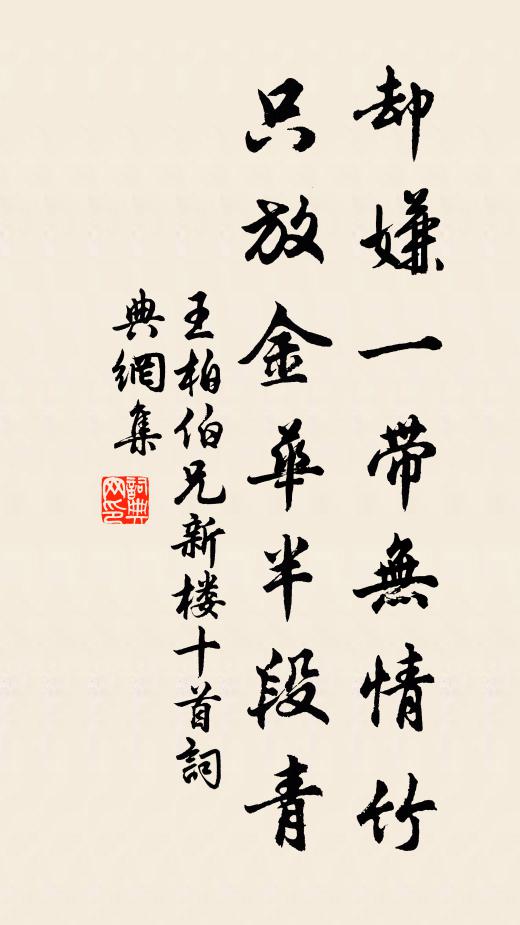 却嫌一带無情竹
只放金華半段青
王柏伯兄新楼十首詞
典網集
詞典網印